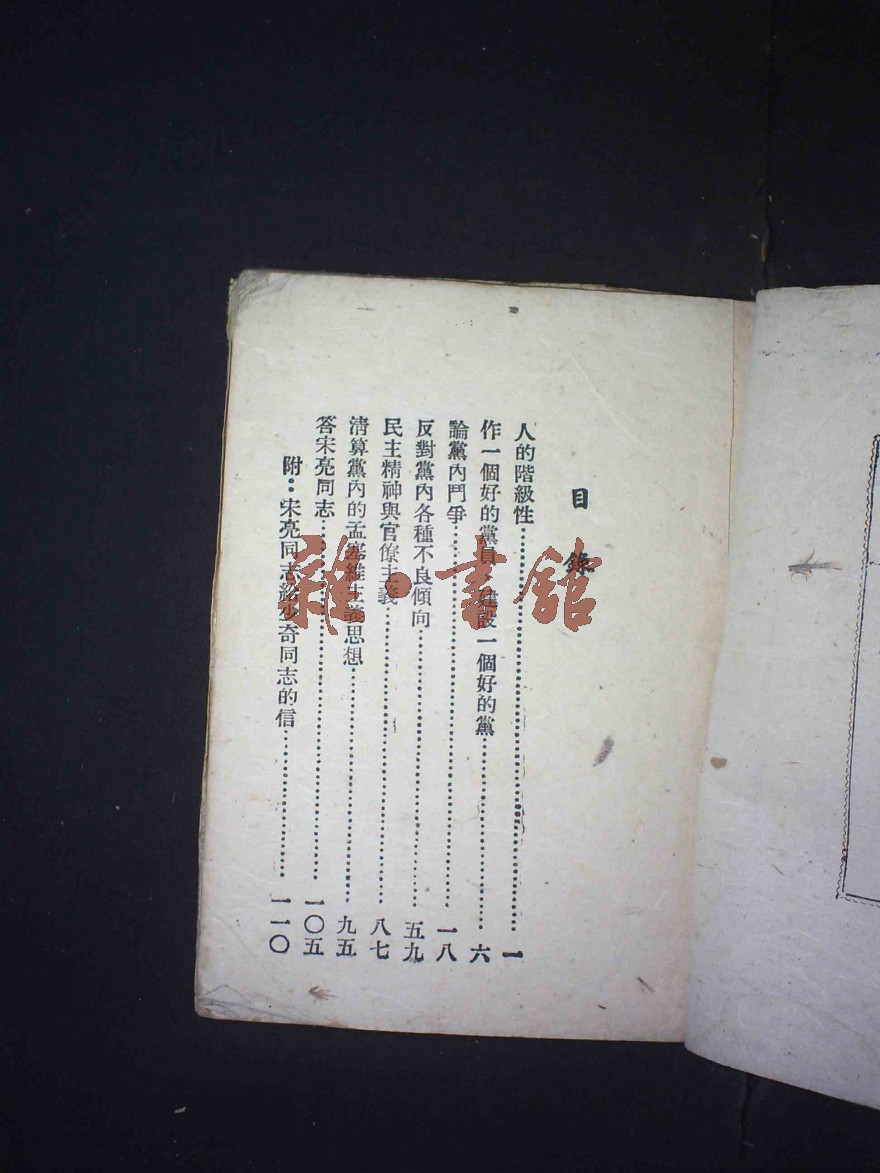 目錄
人的階級性……一
作一個好的黨員 建設一個好的黨……六
論黨內鬥爭……一八
反對黨內各種不良傾向……五九
民主精神與官僚主義……八七
清算黨內的孟塞維主義思想……九五
答宋亮同志……一〇五
附：宋亮同志給少奇同志的信……一一〇
雜·書館